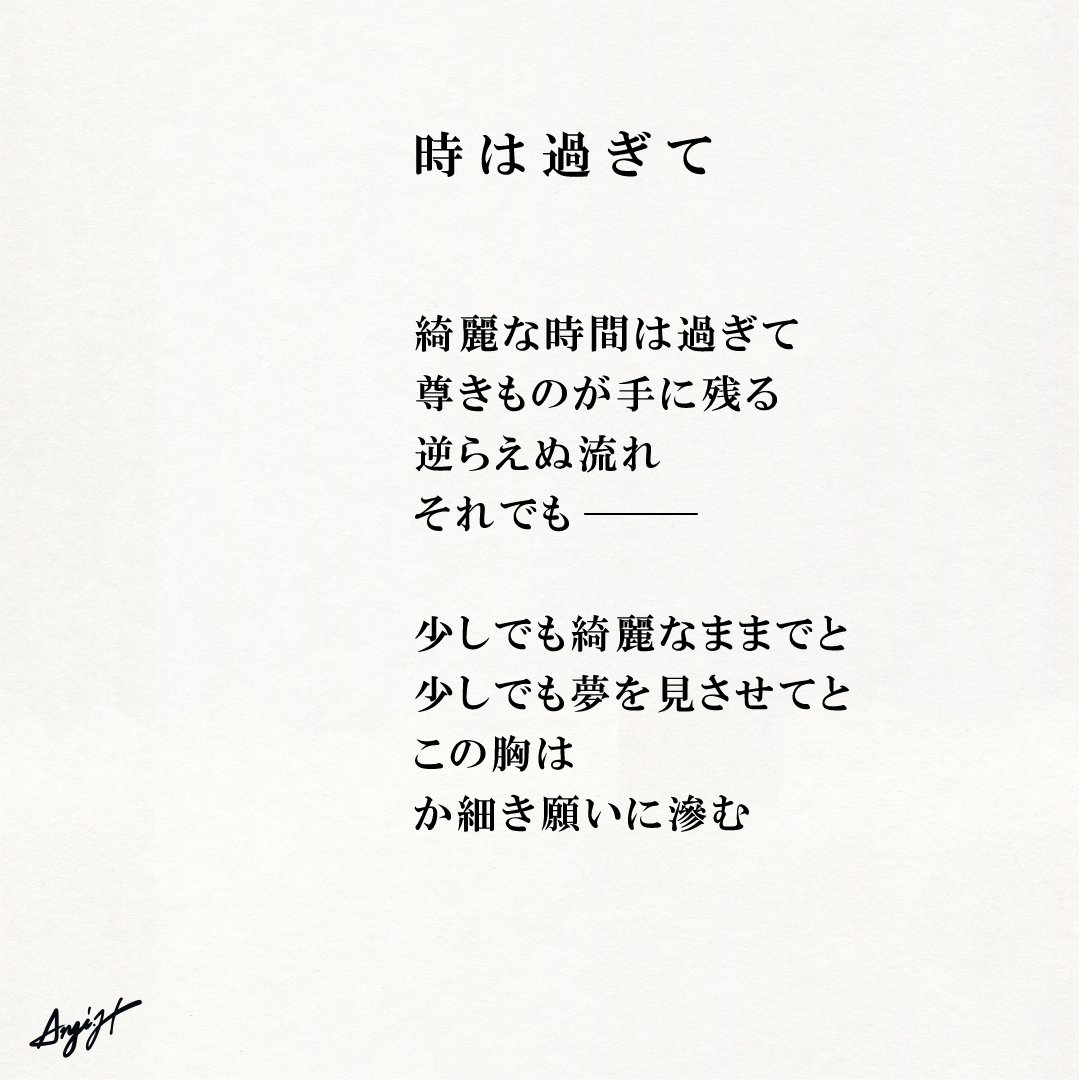 時は過ぎて
綺麗な時間は過ぎて
尊きものが手に残る
逆らえぬ流れ
それでも———
少しでも綺麗なままでと
少しでも夢を見させてと
この胸は
か細き願いに滲む